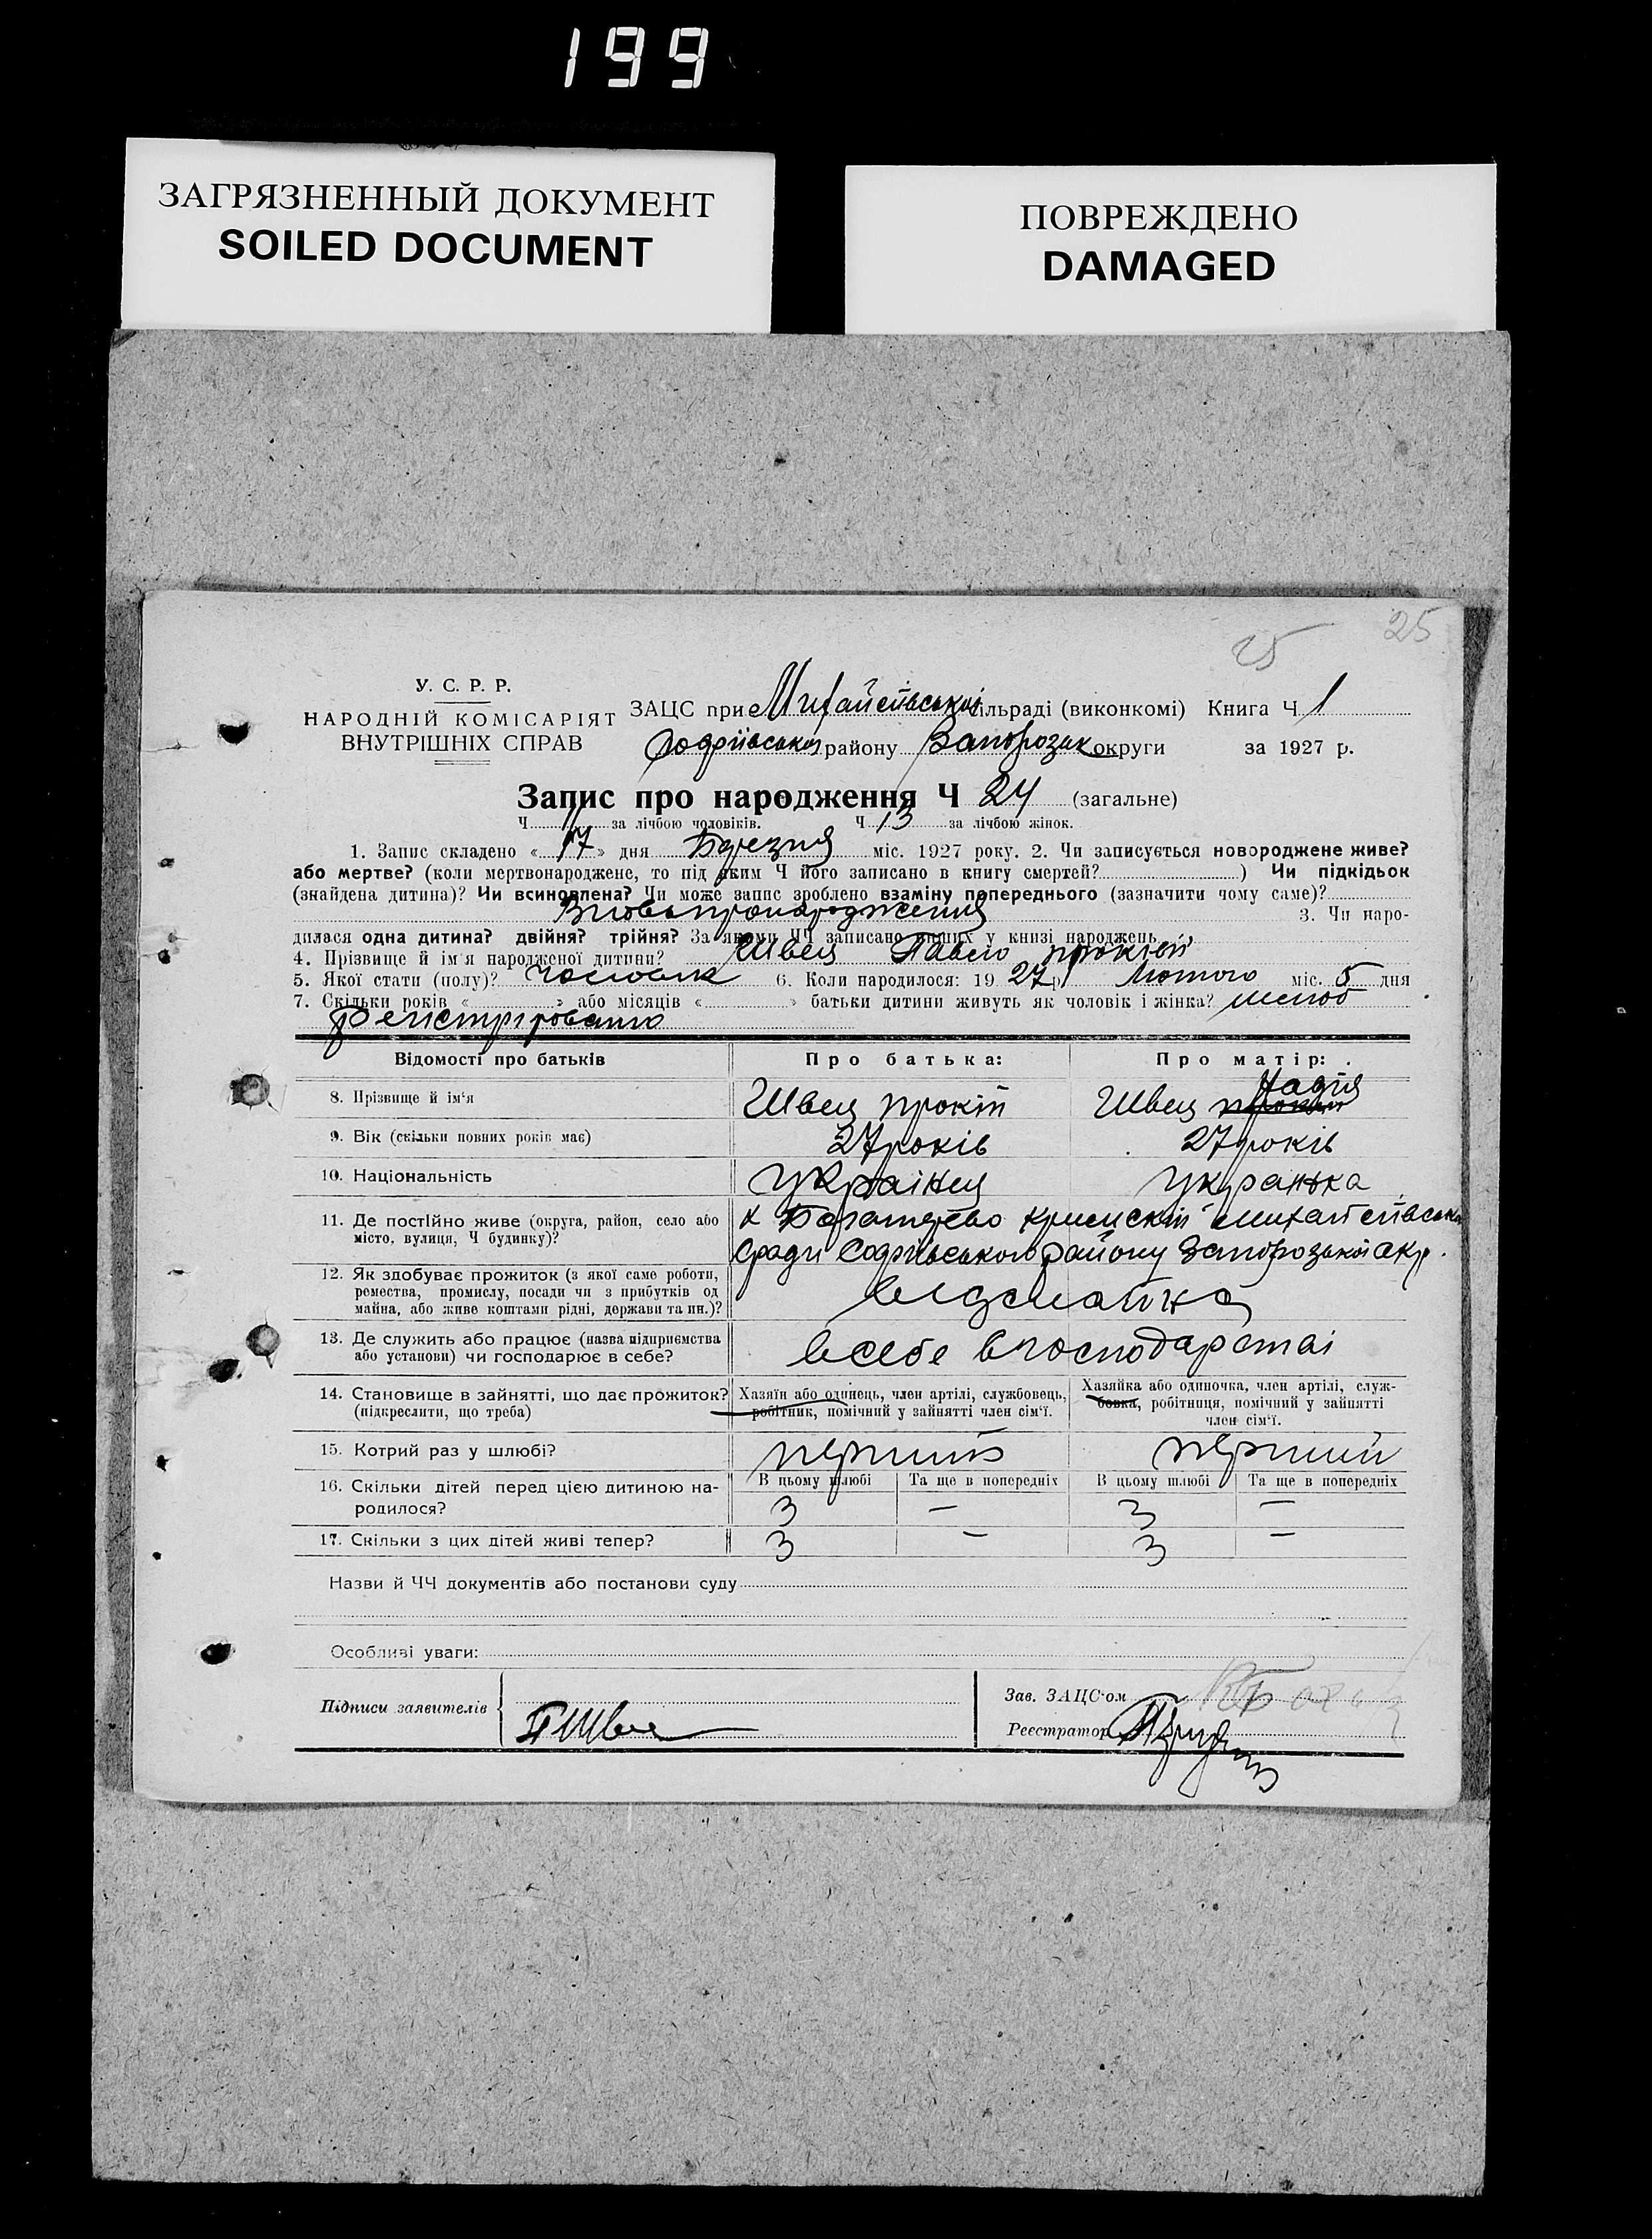 199
ЗАГРЯЗНЕННЫЙ ДОКУМЕНТ
SOILED DOCUMENT
ПОВРЕЖДЕНО
DAMAGED
25 25
У. С. Р. Р.
НАРОДНІЙ КОМІСАРІЯТ
ВНУТРІШНІХ СПРАВ
ЗАЦС при Михайлівської сільраді (виконкомі) Книга Ч 1
району Запорізьк округи за 1927 р.
Запис про народження Ч 24 (загальне)
Ч 11 за лічбою чоловіків. Ч 13 за лічбою жінок.
1. Запис складено « 17 » дня Березня міс. 1927 року. 2. Чи записується новороджене живе?
або мертве? (коли мертвонароджене, то під яким Ч його записано в книгу смертей? ) Чи підкідьок
(знайдена дитина)? Чи всиновлена? Чи може запис зроблено взаміну попереднього (зазначити чому саме)?
3. Чи наро-
дилася одна дитина? двійня? трійня? За якими ЧЧ записано инших у книзі народжень
4. Прізвище й ім'я народженої дитини? Швец Павло Прокіп
5. Якої стати (полу)? чоловик 6. Коли народилося: 19 27 р Лютого міс. 5 дня
7. Скільки років « » або місяців « » батьки дитини живуть як чоловік і жінка? шлюб
Регистрировано
Відомості про батьків
Про батька:
Про матір:
8. Прізвище й ім'я
Швец Прокіп
Швец Надія
9. Вік (скільки повних років має)
27 років
27 років
10. Національність
Украінец
Укранька
11. Де постійно живе (округа, район, село або
місто, вулиця, Ч будинку)?
х Михайлівськ
сради району Запорозької окр.
12. Як здобуває прожиток (з якої саме роботи,
ремества, промислу, посади чи з прибутків од
майна, або живе коштами рідні, держави та ин.)?
13. Де служить або працює (назва підприємства
або установи) чи господарює в себе?
в себе в господарстві
14. Становище в зайнятті, що дає прожиток?
(підкреслити, що треба)
Хазяїн або одинець, член артілі, службовець,
робітник, помічний у зайнятті член сім'ї.
Хазяйка або одиночка, член артілі, служ-
бовка, робітниця, помічний у зайнятті
член сім'ї.
15. Котрий раз у шлюбі?
перший
перший
16. Скільки дітей перед цією дитиною на-
родилося?
В цьому шлюбі
Та ще в попередніх
В цьому шлюбі
Та ще в попередніх
3 — 3 —
17. Скільки з цих дітей живі тепер?
3 — 3 —
Назви й ЧЧ документів або постанови суду
Особливі уваги:
Підписи заявителів
П Швец
Зав. ЗАЦС'ом
Реєстратор